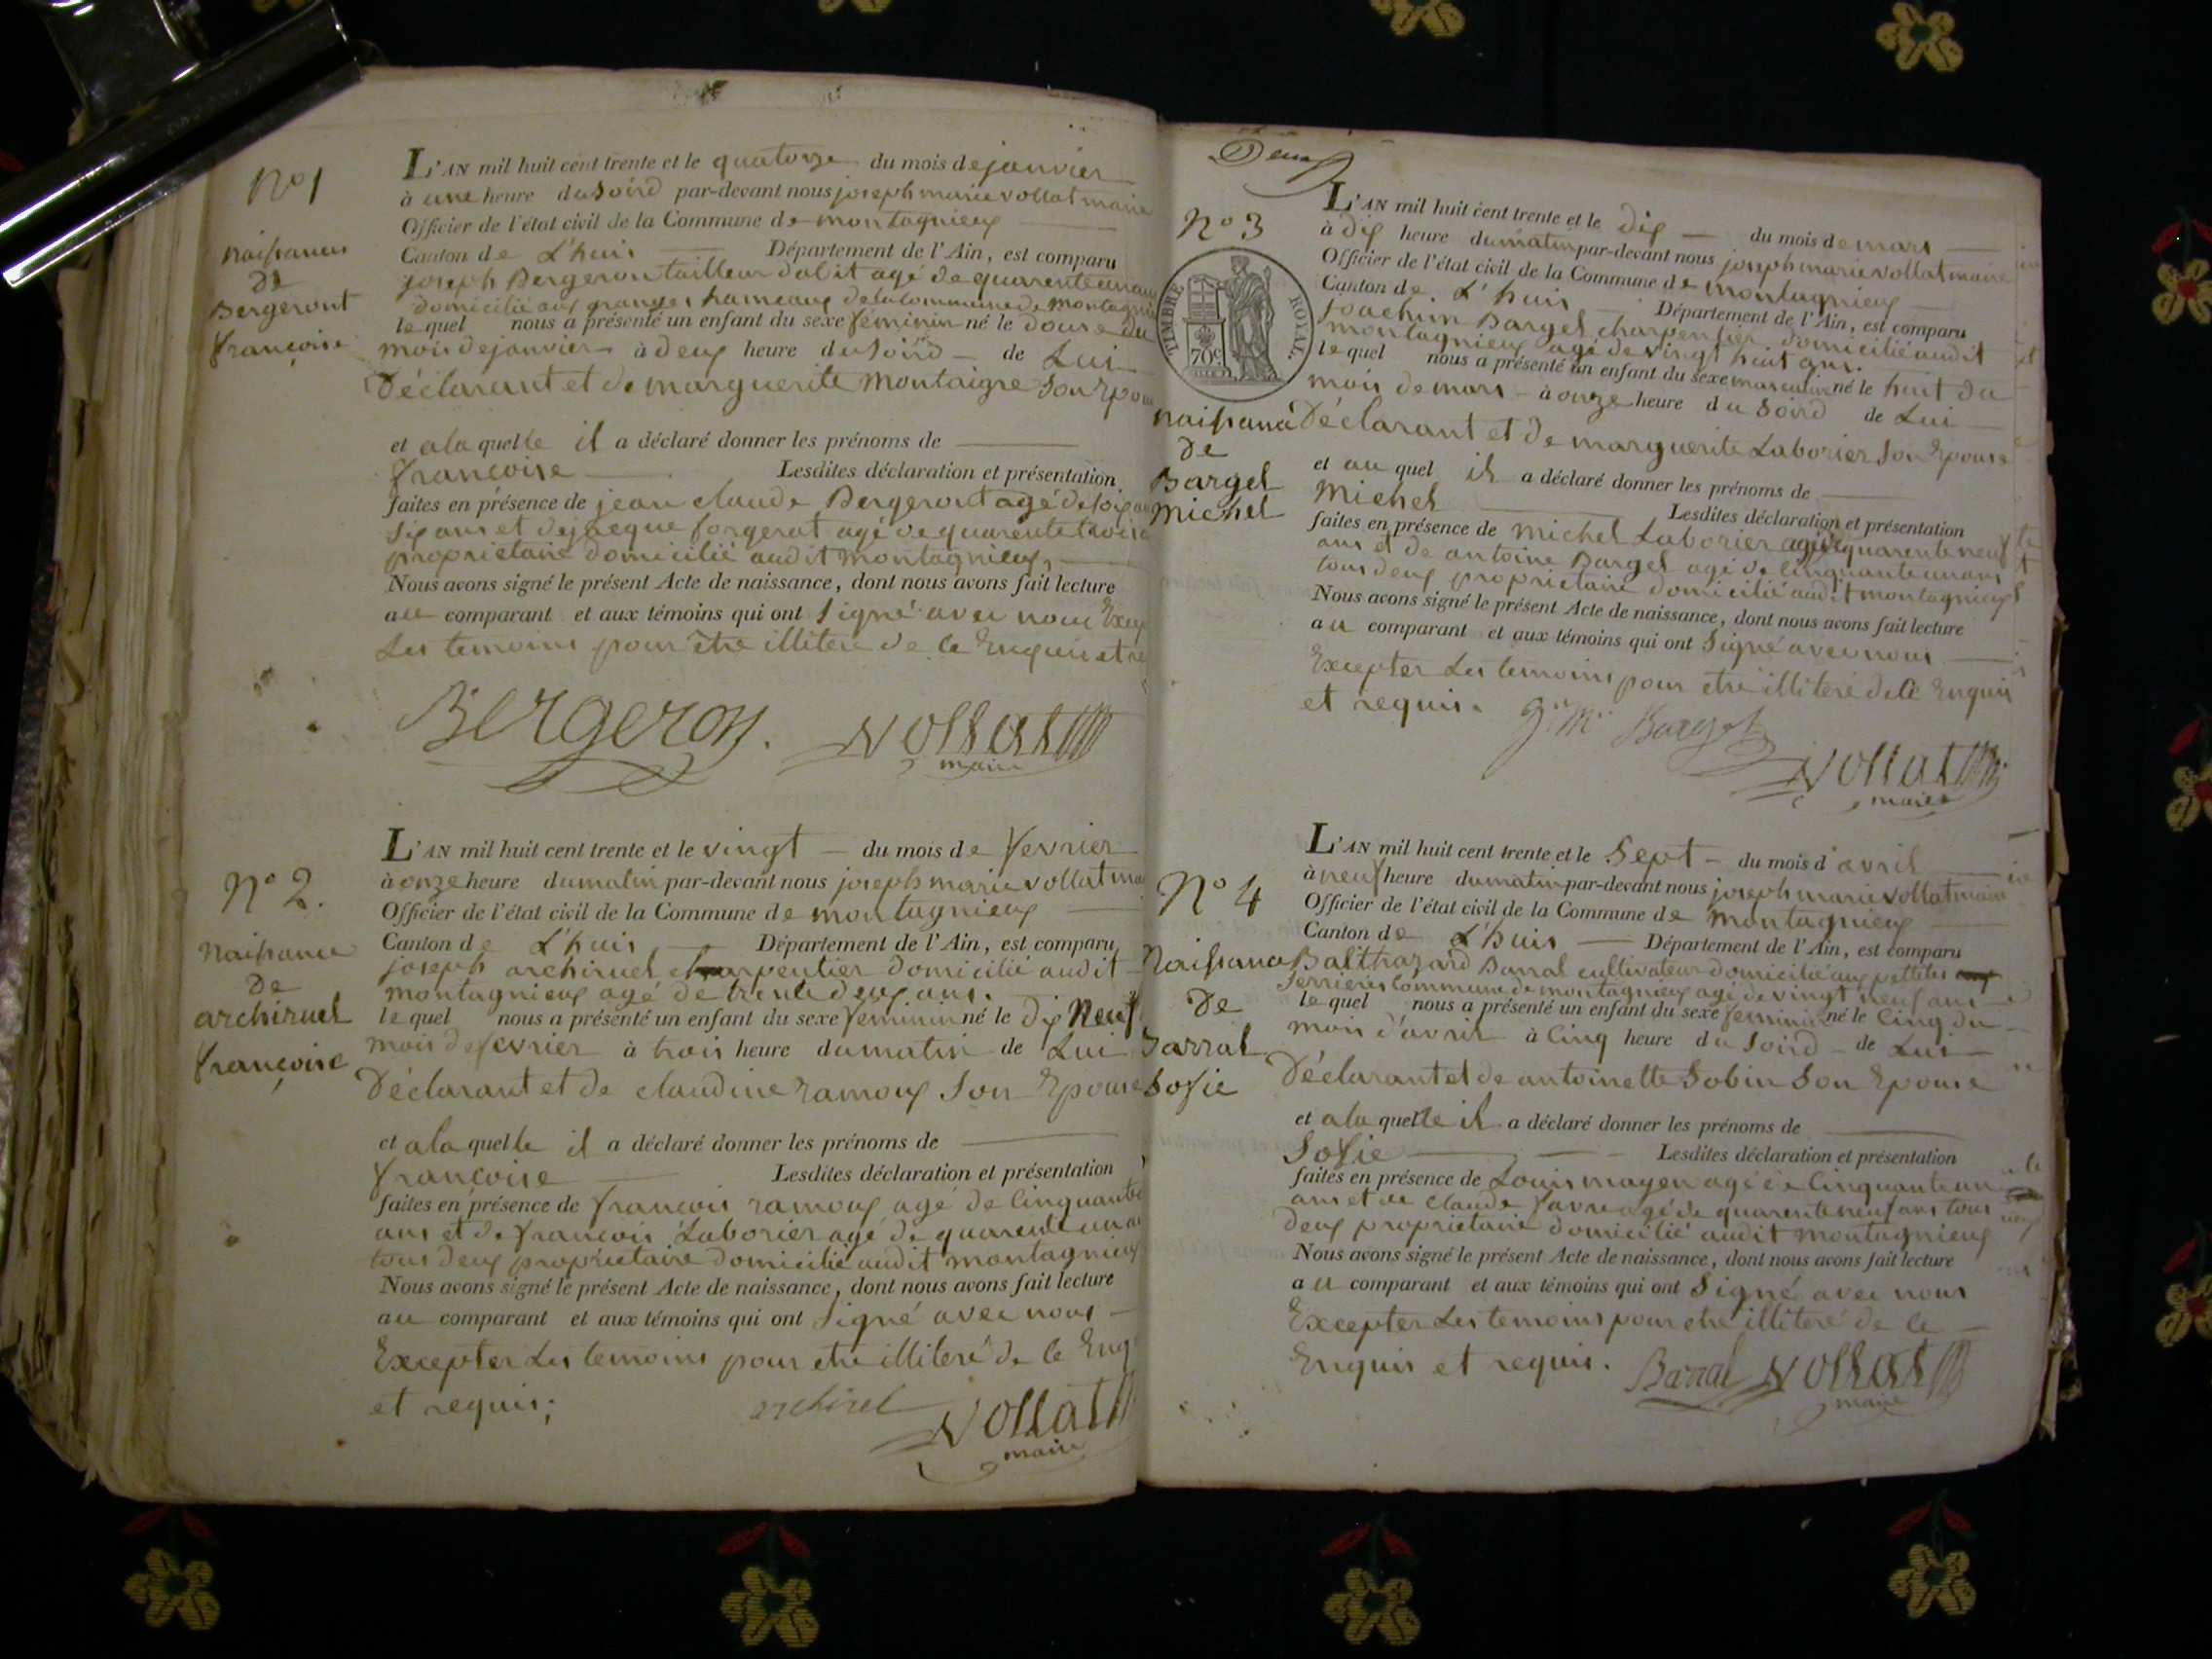 N° 1
naissance
de
Bergeront
françoise
L'AN mil huit cent trente et le quatorze du mois de janvier
à une heure du soird par-devant nous joseph marie vollat maire
Officier de l'état civil de la Commune de montagnieux
Canton de L'huis Département de l'Ain, est comparu
joseph Bergeron tailleur dabit agé de quarente
domicilié aux granges hameaux de la commune de montagni
le quel nous a présenté un enfant du sexe féminin né le douse du
mois de janvier à deux heure du soird de Lui
Déclarant et de marguerite montaigre son Epou
et a la quelle il a déclaré donner les prénoms de
françoise Lesdites déclaration et présentation
faites en présence de jean claude Bergeront agé de
six ans et de jacque forgerat agé de quarente trois
proprietaire domicilié audit montagnieux,
Nous avons signé le présent Acte de naissance, dont nous avons fait lecture
au comparant et aux témoins qui ont signé avec nous Excep
Les temoins pour être illiteré de ce Enquis et re
Bergeron. Vollat
maire
N° 2.
Naissance
De
archiruel
françoise
L'AN mil huit cent trente et le vingt du mois de fevrier
à onze heure du matin par-devant nous joseph marie vollat ma
Officier de l'état civil de la Commune de montagnieux
Canton de L'huis Département de l'Ain, est comparu
joseph archiruel charpentier domicilié audit
montagnieux agé de trente deux ans.
le quel nous a présenté un enfant du sexe feminin né le dix Neuf
mois de fevrier à trois heure du matin de Lui
Déclarant et de claudine ramoux son Epouse
et a la quelle il a déclaré donner les prénoms de
françoise Lesdites déclaration et présentation
faites en présence de francois ramoux agé de Cinquante
ans et de francois Laborier agé de quarente un a
tous deux proprietaire domicilié audit montagnieux
Nous avons signé le présent Acte de naissance, dont nous avons fait lecture
au comparant et aux témoins qui ont signé avec nous
Excepter Les temoins pour etre illiteré de ce Enq
et requis;
Vollat
maire
Deux
N° 3
TIMBRE ROYAL.
70c
naissance
De
Bargel
michel
L'AN mil huit cent trente et le dix du mois de mars
à dix heure du matin par-devant nous joseph marie vollat maire
Officier de l'état civil de la Commune de montagnieux
Canton de L'huis Département de l'Ain, est comparu
joachim Bargel charpentier domicilié audit
montagnieux agé de vingt huit ans.
le quel nous a présenté un enfant du sexe masculin né le huit du
mois de mars à onze heure du soird de Lui
Déclarant et de marguerite Laborier son Epouse
et au quel il a déclaré donner les prénoms de
Michel Lesdites déclaration et présentation
faites en présence de michel Laborier agé de quarente neuf
ans et de antoine Bargel agé de Cinquante un ans
tous deux proprietaire domicilié audit montagnieux
Nous avons signé le présent Acte de naissance, dont nous avons fait lecture
au comparant et aux témoins qui ont signé avec nous
Excepter Les temoins pour etre illiteré de ce Enquis
et requis. Bargel
Vollat
maire
N° 4
Naissance
De
Barral
Sofie
L'AN mil huit cent trente et le sept du mois d'avril
à neuf heure du matin par-devant nous joseph marie vollat maire
Officier de l'état civil de la Commune de montagnieux
Canton de L'huis Département de l'Ain, est comparu
Balthazard Barral cultivateur domicilié aux pettites
serrieres commune de montagnieux agé de vingt neuf ans
le quel nous a présenté un enfant du sexe feminin né le Cinq du
mois d'avril à Cinq heure du soird de Lui
Déclarant et de antoinette Sobin son Epouse
et a la quelle il a déclaré donner les prénoms de
Sofie Lesdites déclaration et présentation
faites en présence de Louis mayen agé de Cinquante un
ans et de claude favre agé de quarente neuf ans tous
deux proprietaire domicilié audit montagnieux
Nous avons signé le présent Acte de naissance, dont nous avons fait lecture
au comparant et aux témoins qui ont signé avec nous
Excepter Les temoins pour etre illiteré de ce
Enquis et requis. Barral Vollat
maire